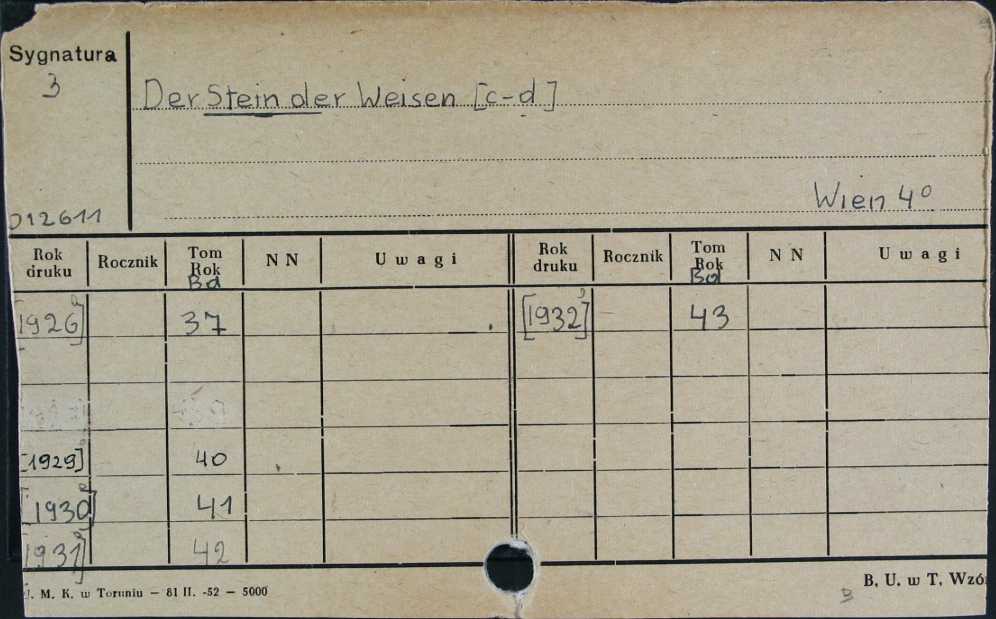 Sygnatura
3
Der Stein der Weisen [c-d]
Wien 4°
012611
Rok druku Rocznik Tom Rok Bd NN Uwagi Rok druku Rocznik Tom Rok Bd NN Uwagi
[1926] 37 [1932] 43
[1929] 40
[1930] 41
[1931] 42
U. M. K. w Toruniu — 81 II. -52 — 5000
B. U. w T. Wzór